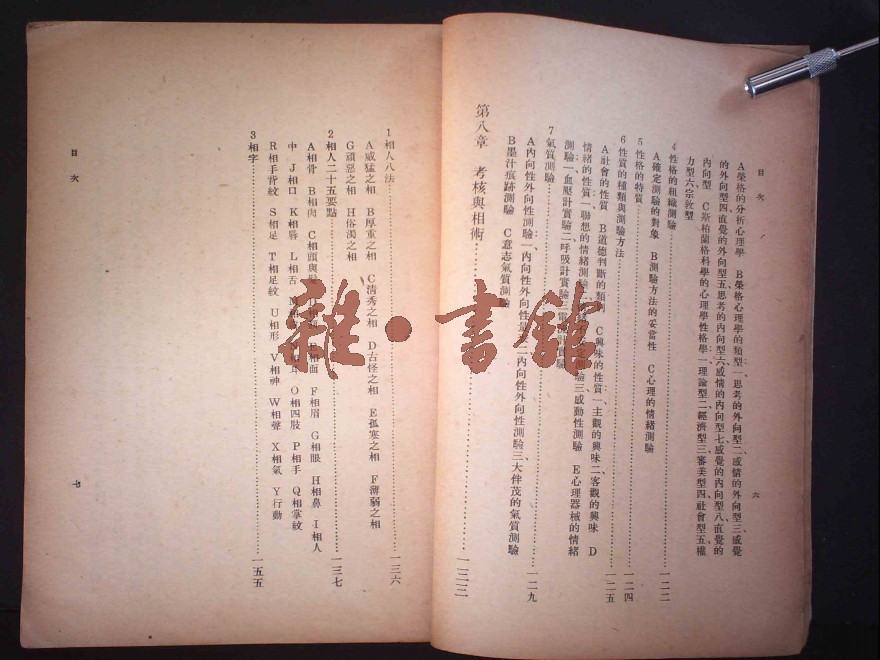 目次
六
A榮格的分析心理學 B榮格心理學的類型一、思考的外向型二、感情的外向型三、感覺
的外向型四、直覺的外向型五、思考的內向型六、感情的內向型七、感覺的內向型八、直覺的
內向型 C斯柏蘭格科學的心理學性格學一、理論型二、經濟型三、審美型四、社會型五、權
力型六、宗敎型
4性格的組織測驗……一二二
A確定測驗的對象 B測驗方法的妥當性 C心理的情緒測驗
5性格的特質……一二四
6性質的種類與測驗方法……一二五
A社會的性質 B道德判斷的類別 C興味的性質一、主觀的興味二、客觀的興味 D
情緒的性質一、聯想的情緒測驗 測驗三、感動性測驗 E心理器械的情緒
測驗一、血壓計實驗二、呼吸計實驗三、電 計實驗
7氣質測驗……一二九
A內向性外向性測驗一、內向性外向性量 二、內向性外向性測驗三、大伴茂的氣質測驗
B墨汁痕跡測驗 C意志氣質測驗
第八章 考核與相術……一三三
1相人八法……一三六
A威猛之相 B厚重之相 C清秀之相 D古怪之相 E孤寒之相 F薄弱之相
G頑惡之相 H俗濁之相
2相人二十五要點……一三七
A相骨 B相肉 C相頭與髮 相面 F相眉 G相眼 H相鼻 I相人
中 J相口 K相唇 L相舌 O相四肢 P相手 Q相掌紋
R相手背紋 S相足 T相足紋 U相形 V相神 W相聲 X相氣 Y行動
3相字……一五五
目次
七
雜·書館